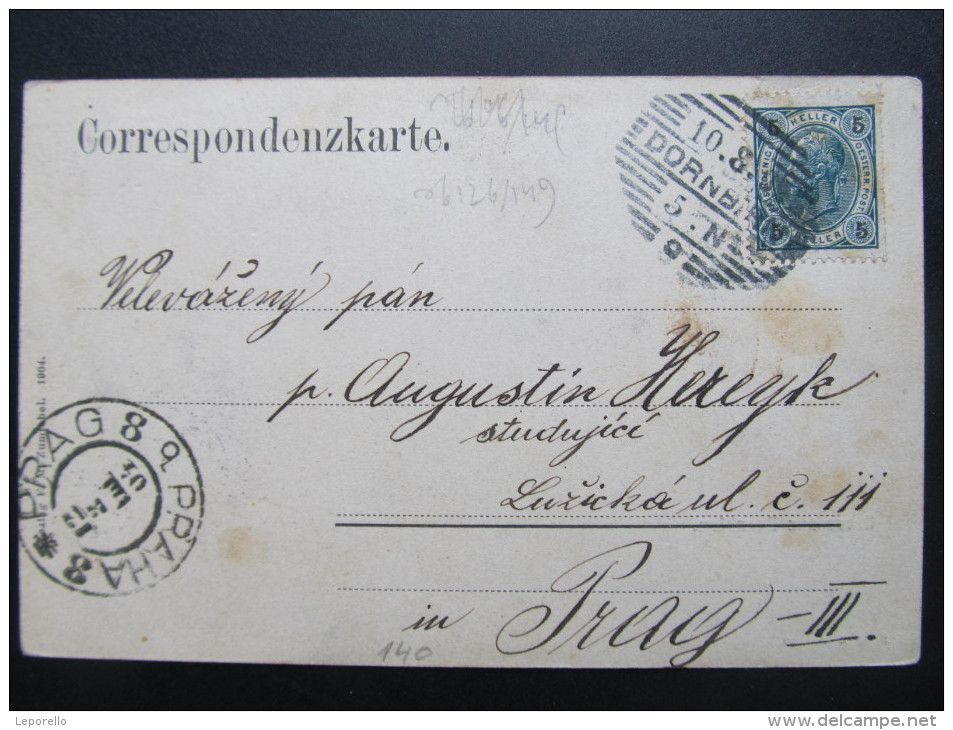 Correspondenzkarte.
26126/149
10.8.
DORNBA
5 . N
9
5 HELLER 5
OESTERR. POST.
5 HELLER 5
Velevážený pán
p. Augustin Herejk
studující
Lužická ul. č. 111
in Prag - III.
PRAG 8 a PRAHA 8 *
1904.
140
Leporello
www.delcampe.net